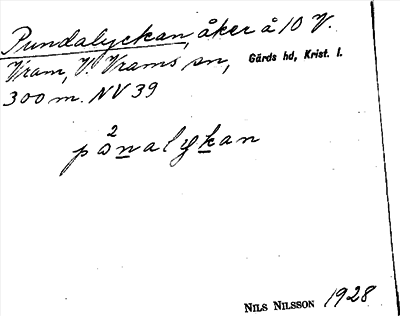 Pundalyckan, åker å 10 V.
Vram, V. Vrams sn, Gärds hd, Krist. l.
300 m. NV 39
2
pånalykan
NILS NILSSON 1928